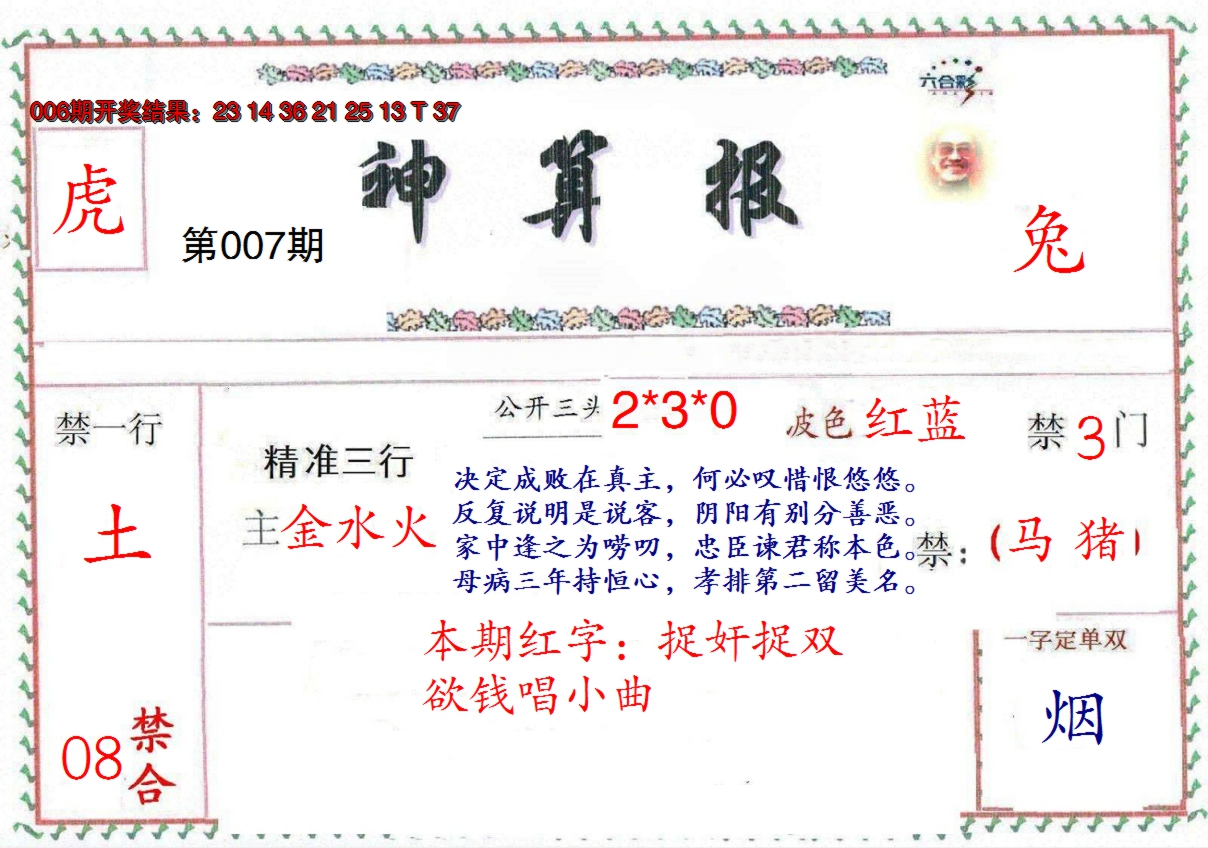 六合彩
006期开奖结果：23 14 36 21 25 13 T 37
神算报
虎
第007期
兔
公开三头 2*3*0
波色 红蓝
禁一行
禁3门
精准三行
土
主金水火
决定成败在真主，何必叹惜恨悠悠。
反复说明是说客，阴阳有别分善恶。
家中逢之为唠叨，忠臣谏君称本色。
母病三年持恒心，孝排第二留美名。
禁：（马 猪）
本期红字：捉奸捉双
欲钱唱小曲
一字定单双
烟
08禁合